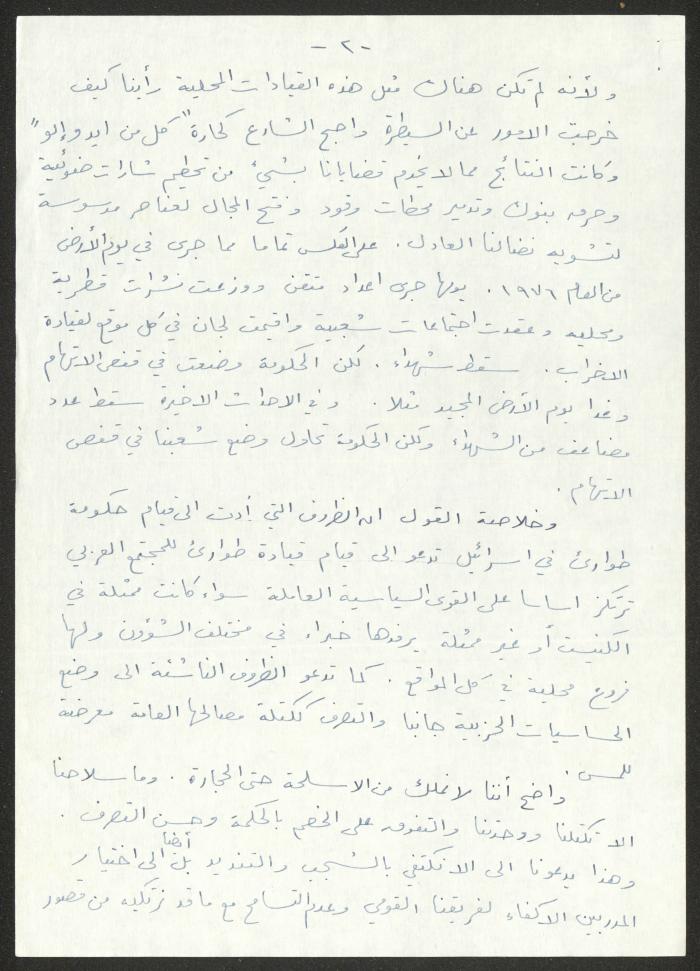 - ٢ -
ولأنه لم تكن هناك مثل هذه القيادات المحلية رأينا كيف
خرجت الامور عن السيطرة واصبح الشارع كحارة "كل من ايدو إلو"
وكانت النتائج مما لا يخدم قضايانا بشيء من تحطيم شارات ضوئية
وحرق بنوك وتدمير محطات وقود وفتح المجال لعناصر مدسوسة
لتشويه نضالنا العادل. على العكس تماما مما جرى في يوم الأرض
من العام ١٩٧٦. يومها جرى اعداد متقن ووزعت نشرات قطرية
ومحليه وعقدت اجتماعات شعبية واقيمت لجان في كل موقع لقيادة
الاضراب. سقط شهداء. لكن الحكومة وضعت في قفص الاتهام
وغدا يوم الأرض المجيد مثلا. وفي الاحداث الاخيرة سقط عدد
مضاعف من الشهداء ولكن الحكومة تحاول وضع شعبنا في قفص
الاتهام.
وخلاصة القول ان الظروف التي أدت الى قيام حكومة
طوارئ في اسرائيل تدعو الى قيام قيادة طوارئ للمجتمع العربي
ترتكز اساسا على القوى السياسية العاملة سواء كانت ممثلة في
الكنيست أو غير ممثلة يرفدها خبراء في مختلف الشؤون ولها
فروع محلية في كل المواقع. كما تدعو الظروف الناشئة الى وضع
الحساسيات الحزبية جانبا والتصرف ككتلة مصالحها العامة معرضة
للمس.
واضح أننا لا نملك من الاسلحة حتى الحجارة. وما سلاحنا
الا تكتلنا ووحدتنا والتفوق على الخصم بالحكمة وحسن التصرف.
وهذا يدعونا الى الا نكتفي بالشجب والتنديد بل أيضا الى اختيار
المدربين الاكفاء لفريقنا القومي وعدم التسامح مع ما قد نرتكبه من قصور